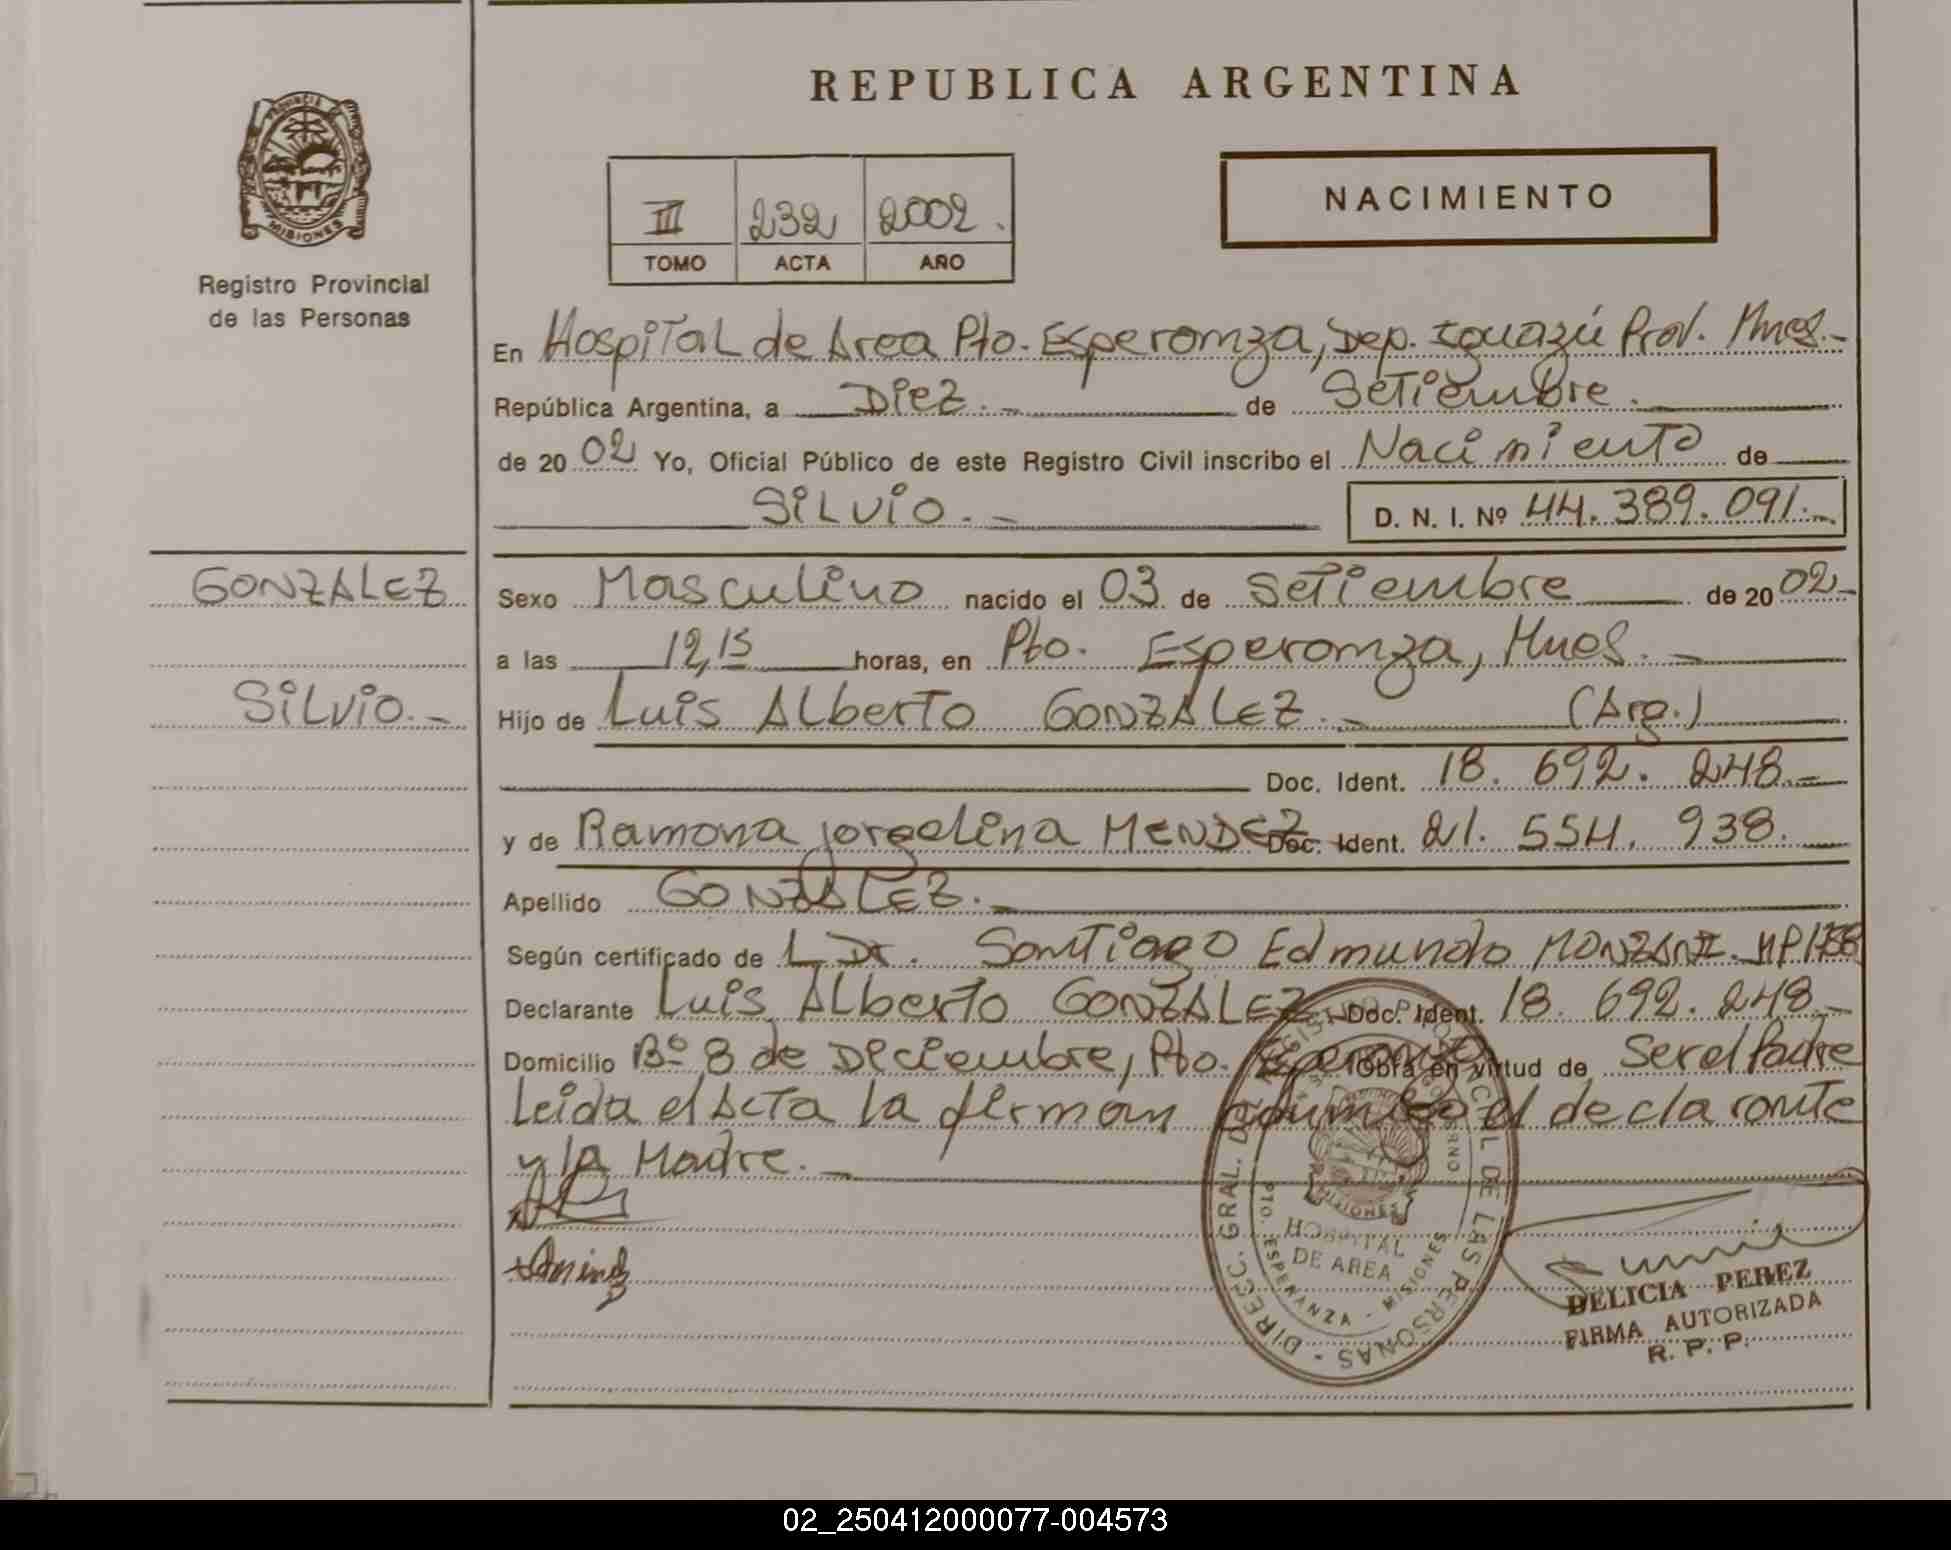 REPUBLICA ARGENTINA
NACIMIENTO
III 232 2002.
TOMO ACTA AÑO
PROVINCIA DE MISIONES
Registro Provincial
de las Personas
GONZALEZ
SiLvio.-
En Hospital de Area Pto. Esperanza, Dep. Iguazú Prov. Mnes.-
República Argentina, a Diez.- de Setiembre.
de 2002 Yo, Oficial Público de este Registro Civil inscribo el Nacimiento de
SiLvio.-
D. N. I. Nº 44.389.091.-
Sexo Masculino nacido el 03 de Setiembre de 2002-
a las 12,15 horas, en Pto. Esperanza, Mnes.-
Hijo de Luis Alberto GONZALEZ.- (Arg.)
Doc. Ident. 18.692.248.-
y de Ramona jorgelina MENDEZ Doc. Ident. 21.554.938.
Apellido GONZALEZ.-
Según certificado de L Dr. Santiago Edmundo MP1758
Declarante Luis Alberto GONZALEZ Doc. Ident. 18.692.248.-
Domicilio Bº 8 de Diciembre, Pto. Esperanza Obra en virtud de Ser el Padre
Leida el Acta la firman conmigo el declarante
y la Madre.-
DIRECC. GRAL. DE LAS PERSONAS
HOSPITAL
DE AREA
PTO. ESPERANZA - MISIONES
DELICIA PEREZ
FIRMA AUTORIZADA
R. P. P.
02_250412000077-004573